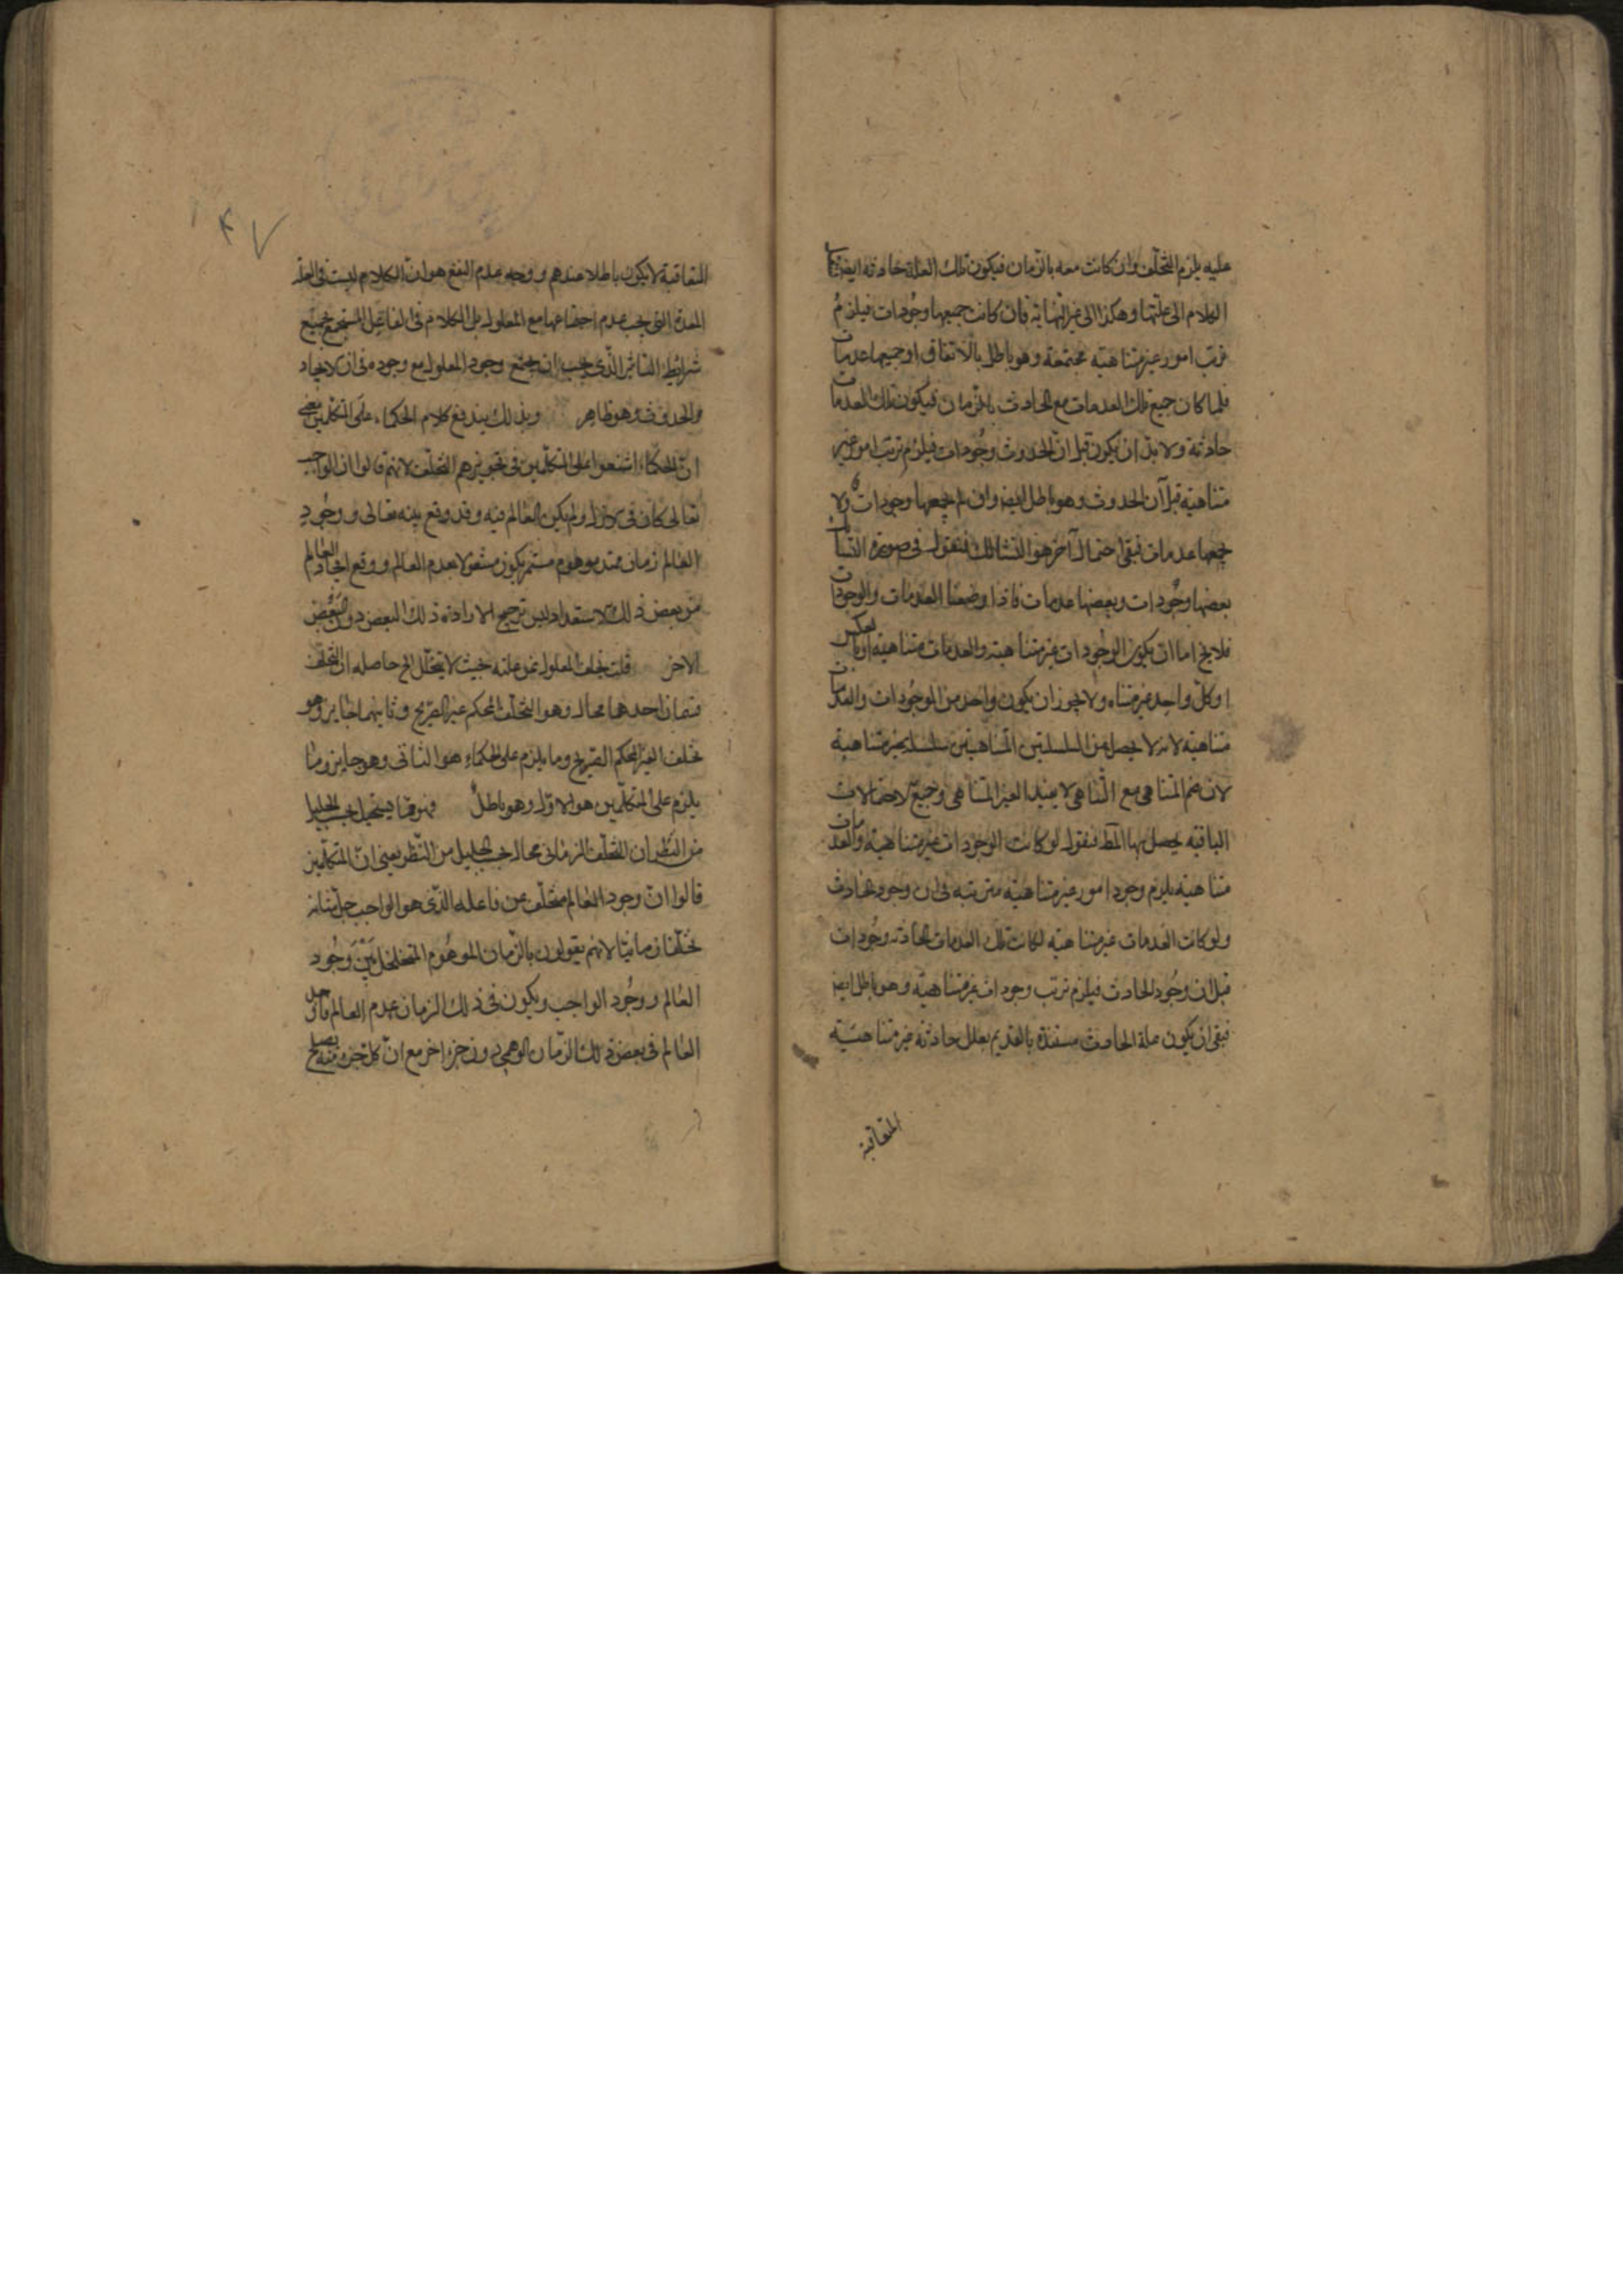 عليه يلزم التخلف وان كانت معه بالزمان فيكون تلك العلة حادثة ايضا
الكلام الى علتها وهكذا الى غير النهاية فان كانت جميعها وجودات فيلزم
ترتب امور غير متناهية مجتمعة وهو باطل بالاتفاق او جميعها عدمات
فلما كان جميع تلك العدمات مع الحادث بالزمان فيكون تلك العدمات
حادثة ولا بد ان يكون قبل ان الحدوث وجودات فيلزم ترتب امور غير
متناهية قبل آن الحدوث وهو باطل ايضا وان لم يكن جميعها وجودات ولا
جميعها عدمات فبقى احتمال آخر هو الثالث فنقول فى صورة
بعضها وجودات وبعضها عدمات فاذا وضعنا العدمات والوجودات
فلا يخ اما ان يكون الوجودات غير متناهية والعدمات متناهية او بالعكس
او كل واحد غير متناه ولا يجوز ان يكون واحد من الموجودات والعدمات
متناهية لانه لا يحصل من السلسلتين المتناهيتين سلسلة غير متناهية
لان ضم المتناهى مع المتناهى لا يفيد الغير المتناهى وجميع الاحتمالات
الباقية يحصل بها المط فنقول لو كانت الوجودات غير متناهية والعدمات
متناهية يلزم وجود امور غير متناهية مترتبة فى ان وجود الحادث
ولو كانت العدمات غير متناهية لكانت تلك العدمات الحادثة وجودات
قبل ان وجود الحادث فيلزم ترتب وجودات غير متناهية وهو باطل ايضا
فبقى ان يكون علة الحادث مستندة بالقديم بعلل حادثة غير متناهية
المتعاقبة
۴۷
المتعاقبة لا يكون باطلا عندهم ووجه عدم النفع هو ان الكلام ليست فى العلة
المعدة التى يجب عدم اجتماعها مع المعلول بل الكلام فى الفاعل المستجمع جميع
شرايط التاثير الذى يجب ان يجتمع وجود المعلول مع وجوده فى ان الايجاد
والحدوث وهو ظاهر وبذلك يندفع كلام الحكماء على المتكلمين يعنى
ان الحكماء اشنعوا على المتكلمين فى تجويزهم التخلف لانهم قالوا ان الواجب
تعالى كان فى الازل ولم يكن العالم فيه وقد وقع بينه تعالى ووجود
العالم زمان ممتد موهوم مستمر يكون مشغولا بعدم العالم ووقع ايجاد العالم
فى بعض ذلك الاستعداد ليس ترجيح الارادة ذلك البعض دون البعض
الاخر قلت تخلف المعلول عن علته حيث لا يتخلل الخ حاصله ان التخلف
قسمان احدهما محال وهو التخلف المحكم غير الصريح وثانيهما جايز وهو
تخلف الغير المحكم الصريح وما يلزم على الحكماء هو الثانى وهو جايز وما
يلزم على المتكلمين هو الاول وهو باطل فهو مما يستحيل بحسب الجليل
من النظر ان التخلف الزمانى محال بحسب الجليل من النظر يعنى ان المتكلمين
قالوا ان وجود العالم متخلف عن فاعله الذى هو الواجب جل شانه
تخلفا زمانيا لانهم يقولون بالزمان الموهوم المتخلل بين وجود
العالم ووجود الواجب ويكون فى ذلك الزمان عدم العالم
العالم فى بعض ذلك الزمان الوهمى دون جزء اخر مع ان كل جزء منه يصلح